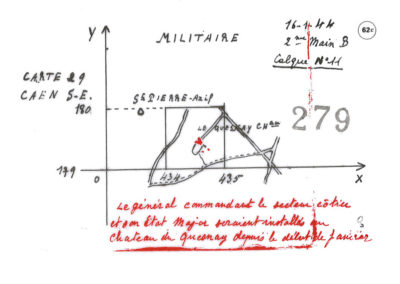 16-1-44
62c
2me Main B
Calque N°11
Y
MILITAIRE
CARTE 29
CAEN S-E.
180
St PIERRE-Azif
279
LE QUESNAY CHau
179
0
434
435
X
Le général commandant le secteur côtier
et son état Major seraient installés au
chateau du Quesnay depuis le début de janvier